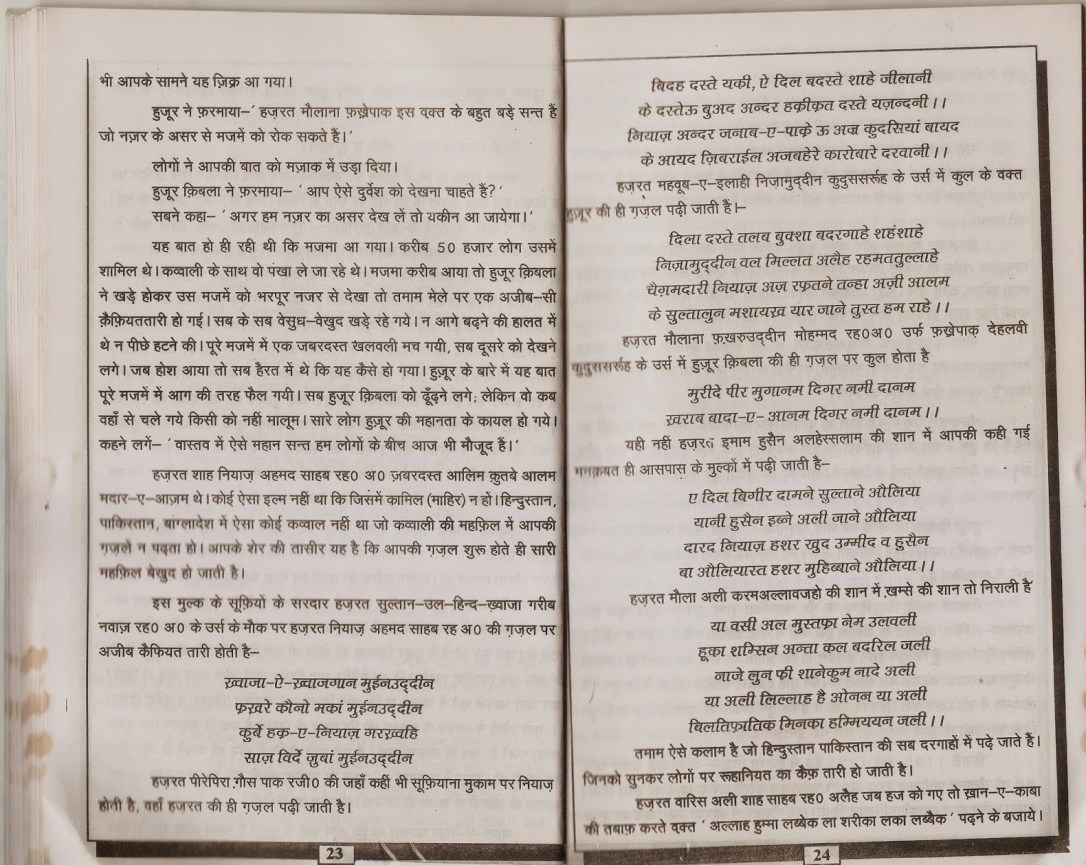 भी आपके सामने यह ज़िक्र आ गया।
हुजूर ने फ़रमाया–' हज़रत मौलाना फ़ख्रेपाक इस वक्त के बहुत बड़े सन्त हैं
जो नज़र के असर से मजमें को रोक सकते हैं।'
लोगों ने आपकी बात को मज़ाक में उड़ा दिया।
हुजूर क़िबला ने फ़रमाया– ' आप ऐसे दुर्वेश को देखना चाहते हैं?'
सबने कहा– ' अगर हम नज़र का असर देख लें तो यकीन आ जायेगा।'
यह बात हो ही रही थी कि मजमा आ गया। करीब 50 हजार लोग उसमें
शामिल थे। कव्वाली के साथ वो पंखा ले जा रहे थे। मजमा करीब आया तो हुजूर क़िबला
ने खड़े होकर उस मजमें को भरपूर नजर से देखा तो तमाम मेले पर एक अजीब–सी
क़ैफ़ियततारी हो गई। सब के सब वेसुध–वेखुद खड़े रह गये। न आगे बढ़ने की हालत में
थे न पीछे हटने की। पूरे मजमें में एक जबरदस्त खलवली मच गयी, सब दूसरे को देखने
लगे। जब होश आया तो सब हैरत में थे कि यह कैसे हो गया। हुजूर के बारे में यह बात
पूरे मजमें में आग की तरह फैल गयी। सब हुजूर क़िबला को ढूँढ़ने लगे; लेकिन वो कब
वहाँ से चले गये किसी को नहीं मालूम। सारे लोग हुजूर की महानता के कायल हो गये।
कहने लगें– ' वास्तव में ऐसे महान सन्त हम लोगों के बीच आज भी मौजूद हैं।'
हज़रत शाह नियाज़ अहमद साहब रह० अ० ज़बरदस्त आलिम क़ुतबे आलम
मदार–ए–आज़म थे। कोई ऐसा इल्म नहीं था कि जिसमें कामिल (माहिर) न हो। हिन्दुस्तान,
पाकिस्तान, बांग्लादेश में ऐसा कोई कव्वाल नहीं था जो कव्वाली की महफ़िल में आपकी
ग़ज़लें न पढ़ता हो। आपके शेर की तासीर यह है कि आपकी ग़ज़ल शुरू होते ही सारी
महफ़िल बेखुद हो जाती है।
इस मुल्क के सूफ़ियों के सरदार हज़रत सुल्तान–उल–हिन्द–ख़्वाजा गरीब
नवाज़ रह० अ० के उर्स के मौक पर हज़रत नियाज़ अहमद साहब रह अ० की ग़ज़ल पर
अजीब कैफियत तारी होती है–
ख़्वाजा–ऐ–ख़्वाजगान मुईनउद्दीन
फ़ख़रे कौनो मकां मुईनउद्दीन
कुर्बे हक़–ए–नियाज़ गरख़्वहि
साज़ विर्दे ज़ुबां मुईनउद्दीन
हज़रत पीरेपिरा ग़ौस पाक रजी० की जहाँ कहीं भी सूफ़ियाना मुकाम पर नियाज़
होती है, वहाँ हज़रत की ही ग़ज़ल पढ़ी जाती है।
23
बिदह दस्ते यकी, ऐ दिल बदस्ते शाहे जीलानी
के दस्तेऊ बुअद अन्दर हक़ीक़त दस्ते यज़न्दनी।।
नियाज़ अन्दर जनाब–ए–पाक़े ऊ अज़ कुदसियां बायद
के आयद ज़िबराईल अजबहेरे कारोबारे दरवानी।।
हज़रत महवूब–ए–इलाही निज़ामुद्दीन कुदुससर्रूह के उर्स में कुल के वक्त
हुज़ूर की ही गज़ल पढ़ी जाती हैं।–
दिला दस्ते तलब बुक्शा बदरगाहे शहंशाहे
निज़ामुद्दीन वल मिल्लत अलैह रहमततुल्लाहे
चैग़मदारी नियाज़ अज़ रफ़्तने तन्हा अज़ी आलम
के सुल्तालुन मशायख़ यार जाने तुस्त हम राहे।।
हज़रत मौलाना फ़ख़रुउद्दीन मोहम्मद रह०अ० उर्फ फ़ख़ेपाक़ देहलवी
कुदुससर्रूह के उर्स में हुज़ूर क़िबला की ही ग़ज़ल पर कुल होता है
मुरीदे पीर मुगानम दिगर नमी दानम
ख़राब बादा–ए– आनम दिगर नमी दानम।।
यही नहीं हज़रत इमाम हुसैन अलहेस्सलाम की शान में आपकी कही गई
मनक़बत ही आसपास के मुल्कों में पढ़ी जाती है–
ए दिल बिगीर दामने सुल्ताने औलिया
यानी हुसैन इब्ने अली जाने औलिया
दारद नियाज़ हशर खुद उम्मीद व हुसैन
बा औलियास्त हशर मुहिब्बाने औलिया।।
हज़रत मौला अली करमअल्लावजहो की शान में ख़म्से की शान तो निराली है
या वसी अल मुस्तफ़ा नेम उलवली
हूका शम्सिन अन्ता कल बदरिल जली
नाजे लुन फी शानेकुम नादे अली
या अली लिल्लाह है ओनन या अली
बिलतिफ़ातिक मिनका हम्मिययन जली।।
तमाम ऐसे कलाम है जो हिन्दुस्तान पाकिस्तान की सब दरगाहों में पढ़े जाते हैं।
जिनको सुनकर लोगों पर रूहानियत का कैफ़ तारी हो जाती है।
हज़रत वारिस अली शाह साहब रह० अलैह जब हज को गए तो ख़ान–ए–काबा
की तबाफ़ करते वक्त ' अल्लाह हुम्मा लब्बेक ला शरीका लका लब्बैक ' पढ़ने के बजाये।
24